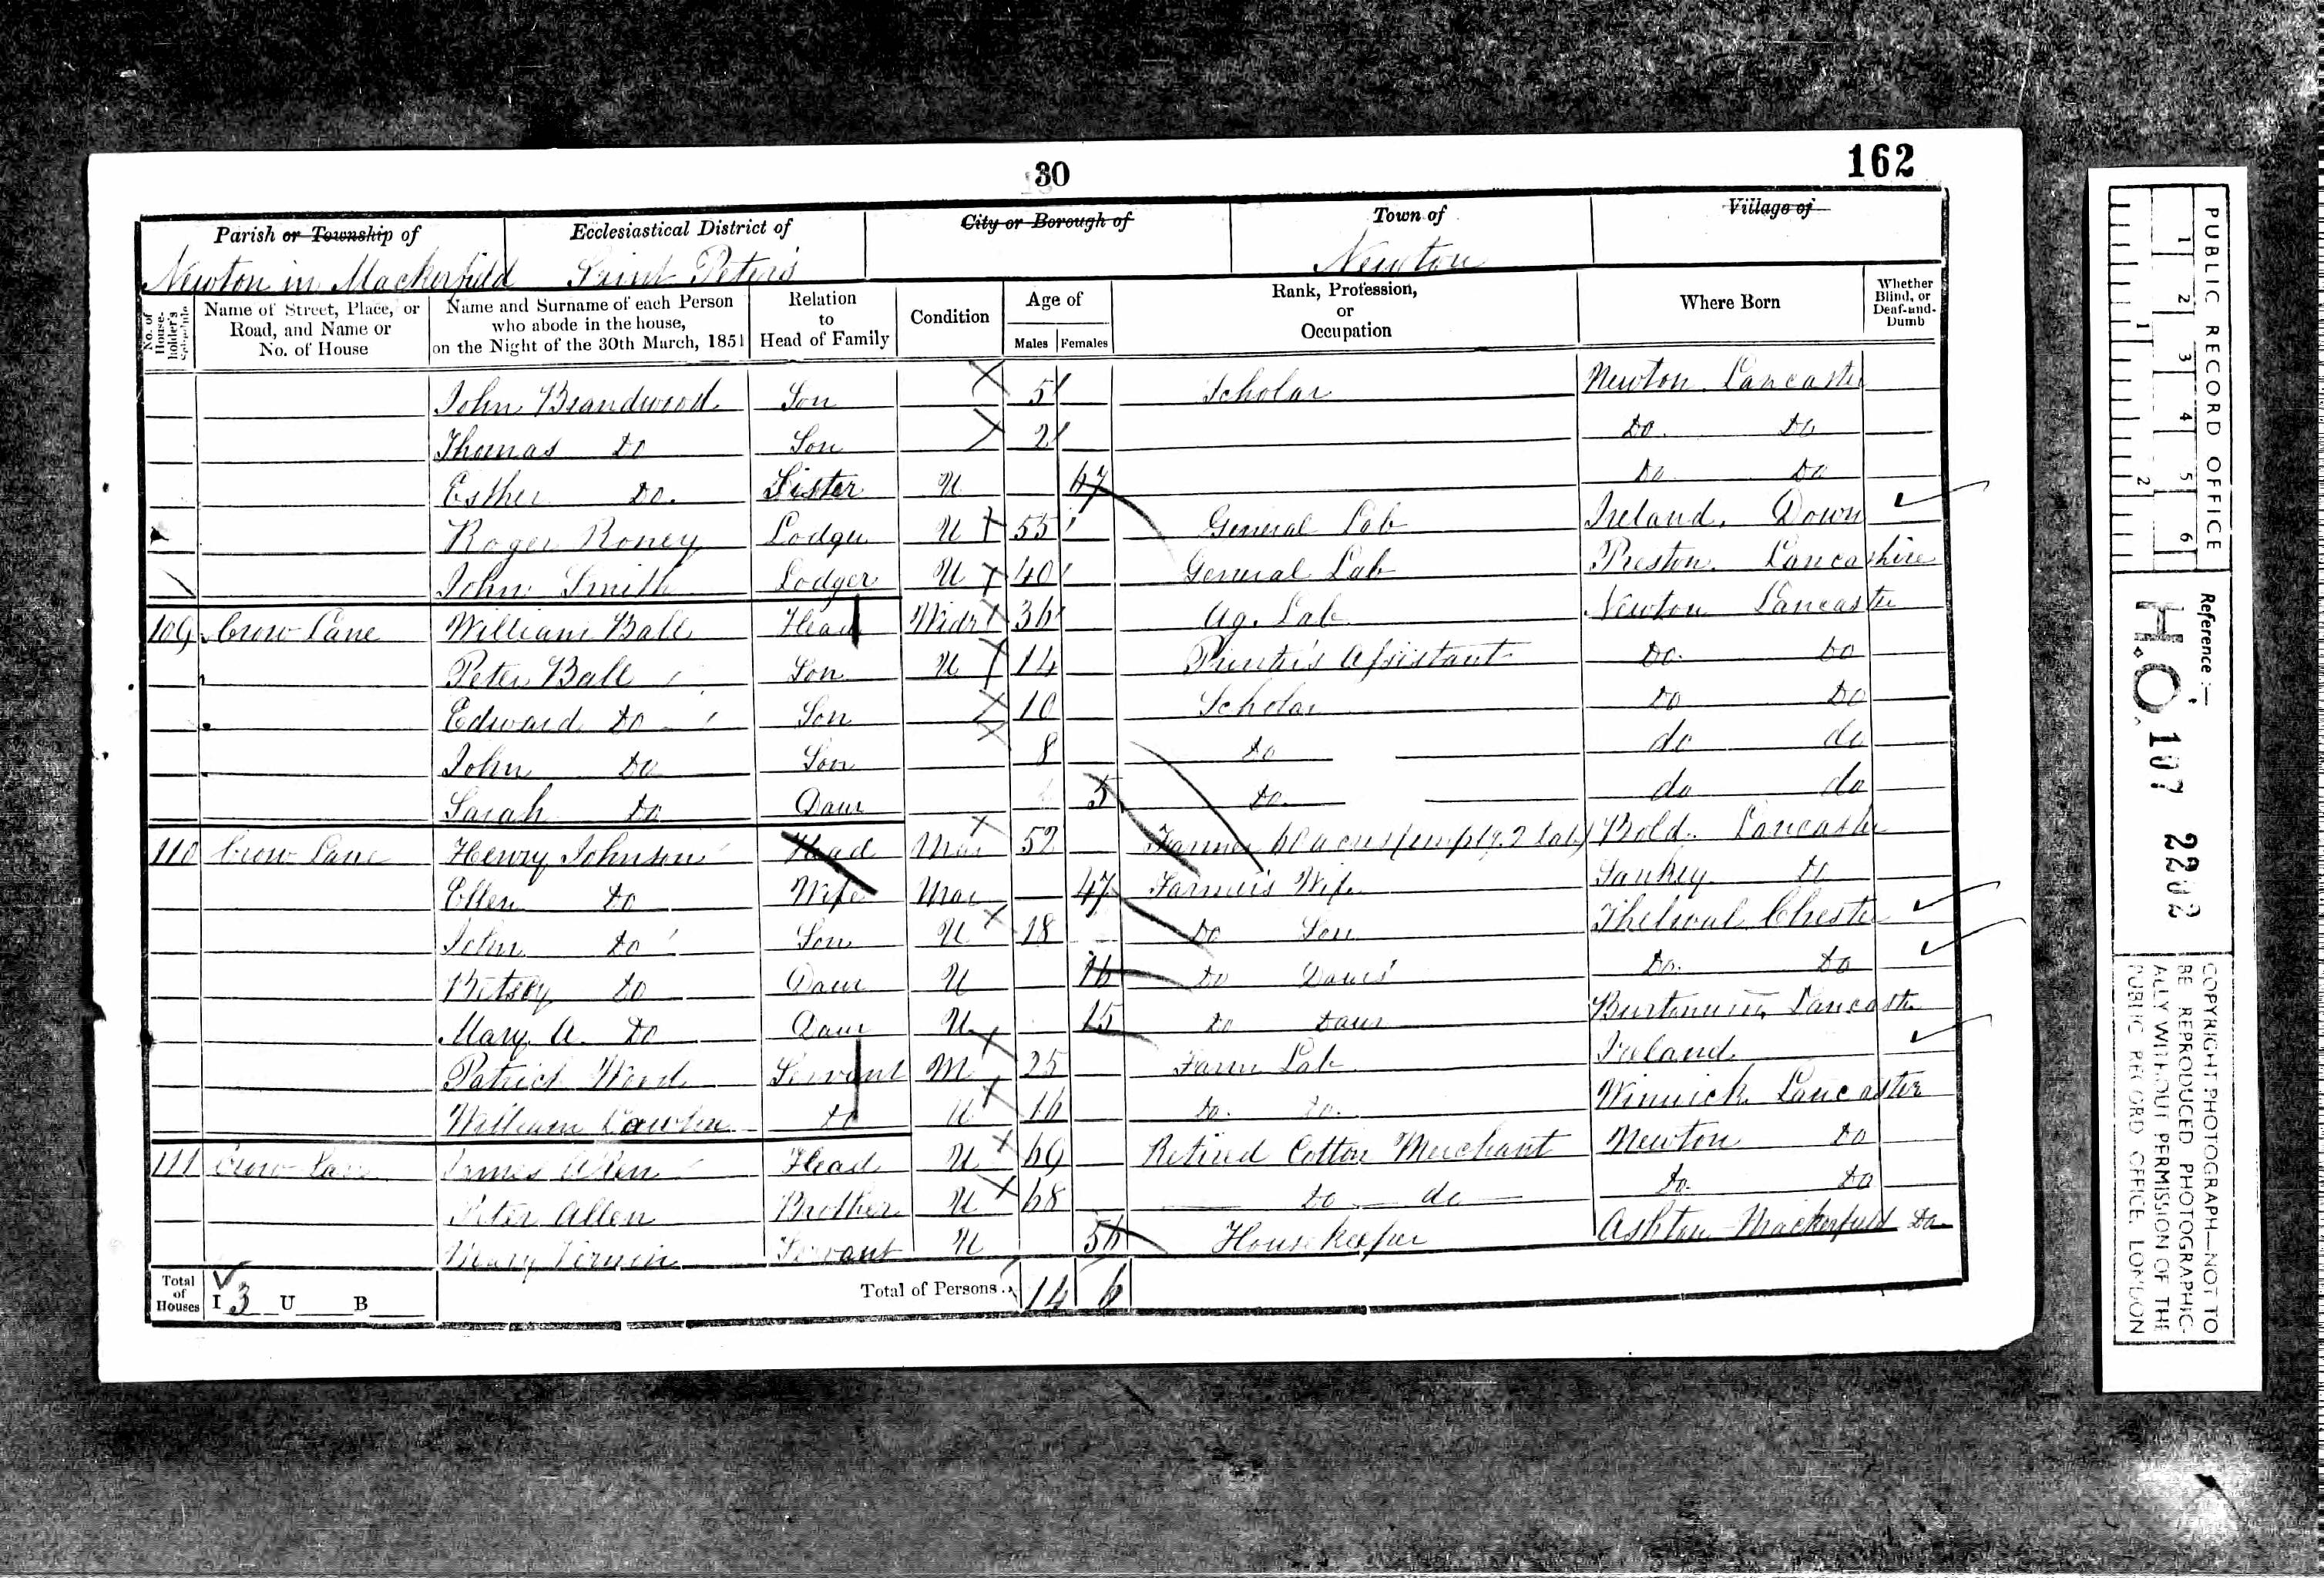 30
162
Parish or Township of
Ecclesiastical District of
City or Borough of
Town of
Village of
Newton in Mackerfield
Saint Peters
Newton
No. of House-holder's Schedule
Name of Street, Place, or Road, and Name or No. of House
Name and Surname of each Person who abode in the house, on the Night of the 30th March, 1851
Relation to Head of Family
Condition
Age of
Males
Females
Rank, Profession, or Occupation
Where Born
Whether Blind, or Deaf-and-Dumb
John Brandwood Son 5 Scholar Newton Lancaster
Thomas Do Son 2 Do Do
Esther Do. Sister U 67 Do Do
Roger Roney Lodger U 55 General Lab Ireland, Down
John Smith Lodger U 40 General Lab Preston Lancashire
109 Crow Lane William Ball Head Widr 36 Ag. Lab Newton Lancaster
Peter Ball Son U 14 Printer's Assistant Do. Do
Edward Do Son 10 Scholar Do Do
John Do Son 8 Do do do
Sarah Do Daur 5 Do do do
110 Crow Lane Henry Johnson Head Mar 52 Farmer 60 acres (employ. 2 lab) Bold. Lancaster
Ellen Do Wife Mar 47 Farmer's Wife Sankey Do
John Do Son U 18 Do Son Thelwal Chester
Betsey Do Daur U 16 Do Daur Do. Do
Mary A. Do Daur U 15 Do Daur Lancaster
Patrick Ward Servant M 25 Farm Lab Ireland
William Do U 16 Do. Do. Winwick Lancaster
111 Crow Lane James Allen Head U 69 Retired Cotton Merchant Newton Do
Peter Allen Brother U 68 Do do Do. Do
Mary Servant U 56 Housekeeper Ashton Mackerfield Do
Total of Houses I 3 U B
Total of Persons 14 6
PUBLIC RECORD OFFICE
1 2 3 4 5 6
1 2
Reference:—
H.O. 107 2202
COPYRIGHT PHOTOGRAPH—NOT TO
BE REPRODUCED PHOTOGRAPHIC-
ALLY WITHOUT PERMISSION OF THE
PUBLIC RECORD OFFICE, LONDON